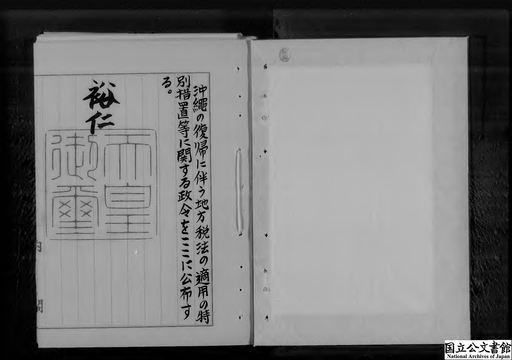 沖縄の復帰に伴う地方税法の適用の特
別措置等に関する政令をここに公布す
る。
裕仁
天皇
御璽
国立公文書館
National Archives of Japan